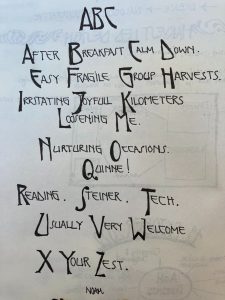 ABC
AFTER BREAKFAST CALM DOWN.
EASY FRAGILE GROUP HARVESTS.
IRRITATING JOYFULL KILOMETERS
LOOSENING ME.
NURTURING OCCASIONS.
QUINNE!
READING. STEINER. TECH.
USUALLY VERY WELCOME
X YOUR ZEST.
NOAM.